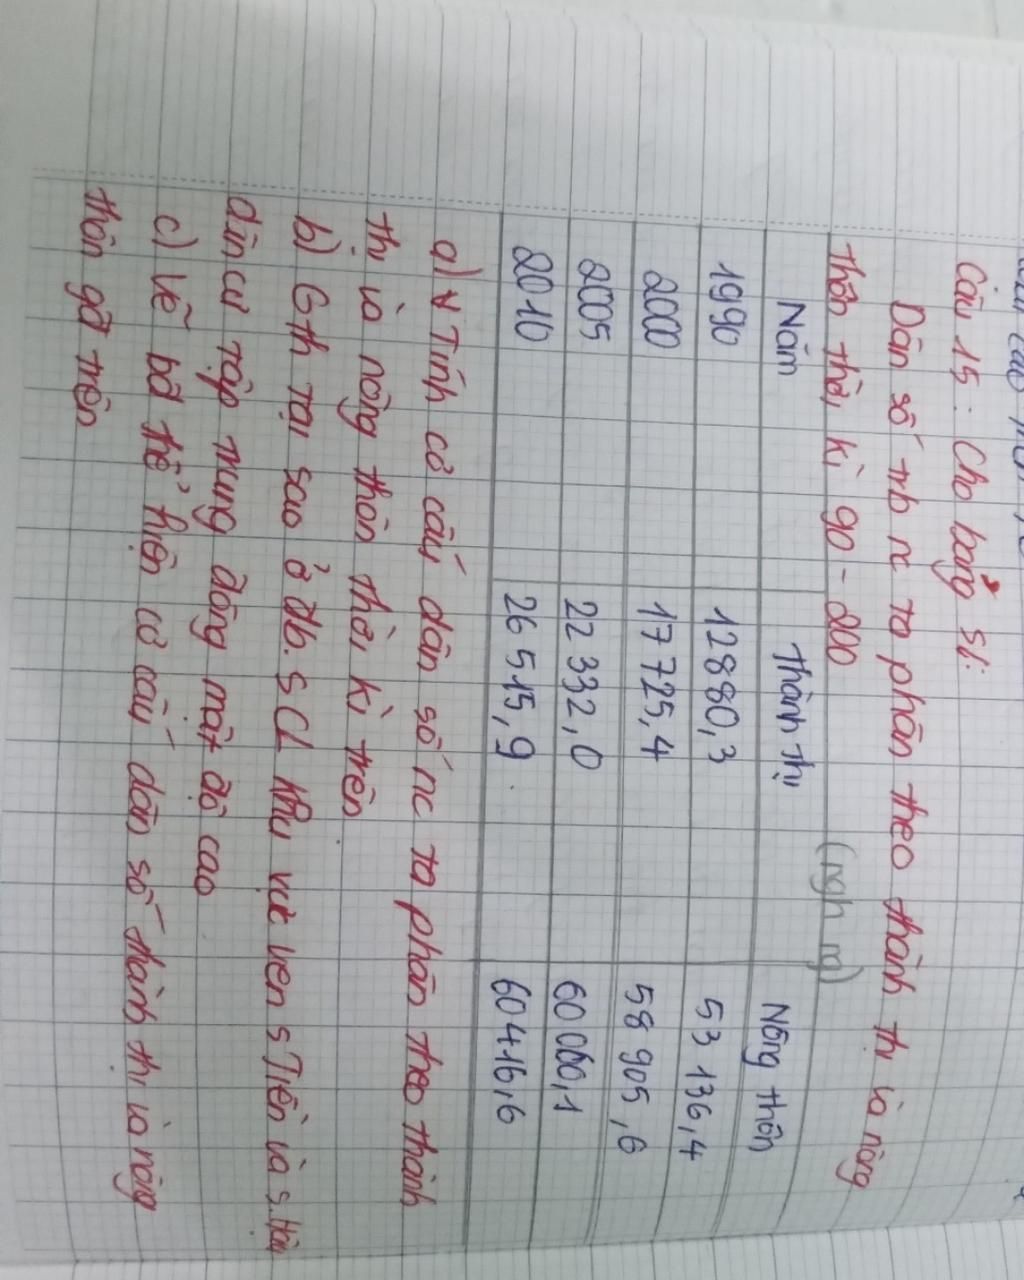 Câu 15: Cho bảng sl:
Dân số trb nc ta phân theo thành thị và nông
thôn thời kì 90 - 200
(ngh ng)
Năm Thành thị Nông thôn
1990 12880,3 53 136,4
2000 17 725,4 58 905,6
2005 22 332,0 60 060,1
2010 26 515,9 60416,6
a) Tính cơ cấu dân số nc ta phân theo thành
thị và nông thôn thời kì trên
b) Gth tại sao ở đb. SCL khu vực ven s Tiền và s. Hậu
dân cư tập trung đông mật độ cao
c) Vẽ bđ thể hiện cơ cấu dân số thành thị và nông
thôn gđ trên